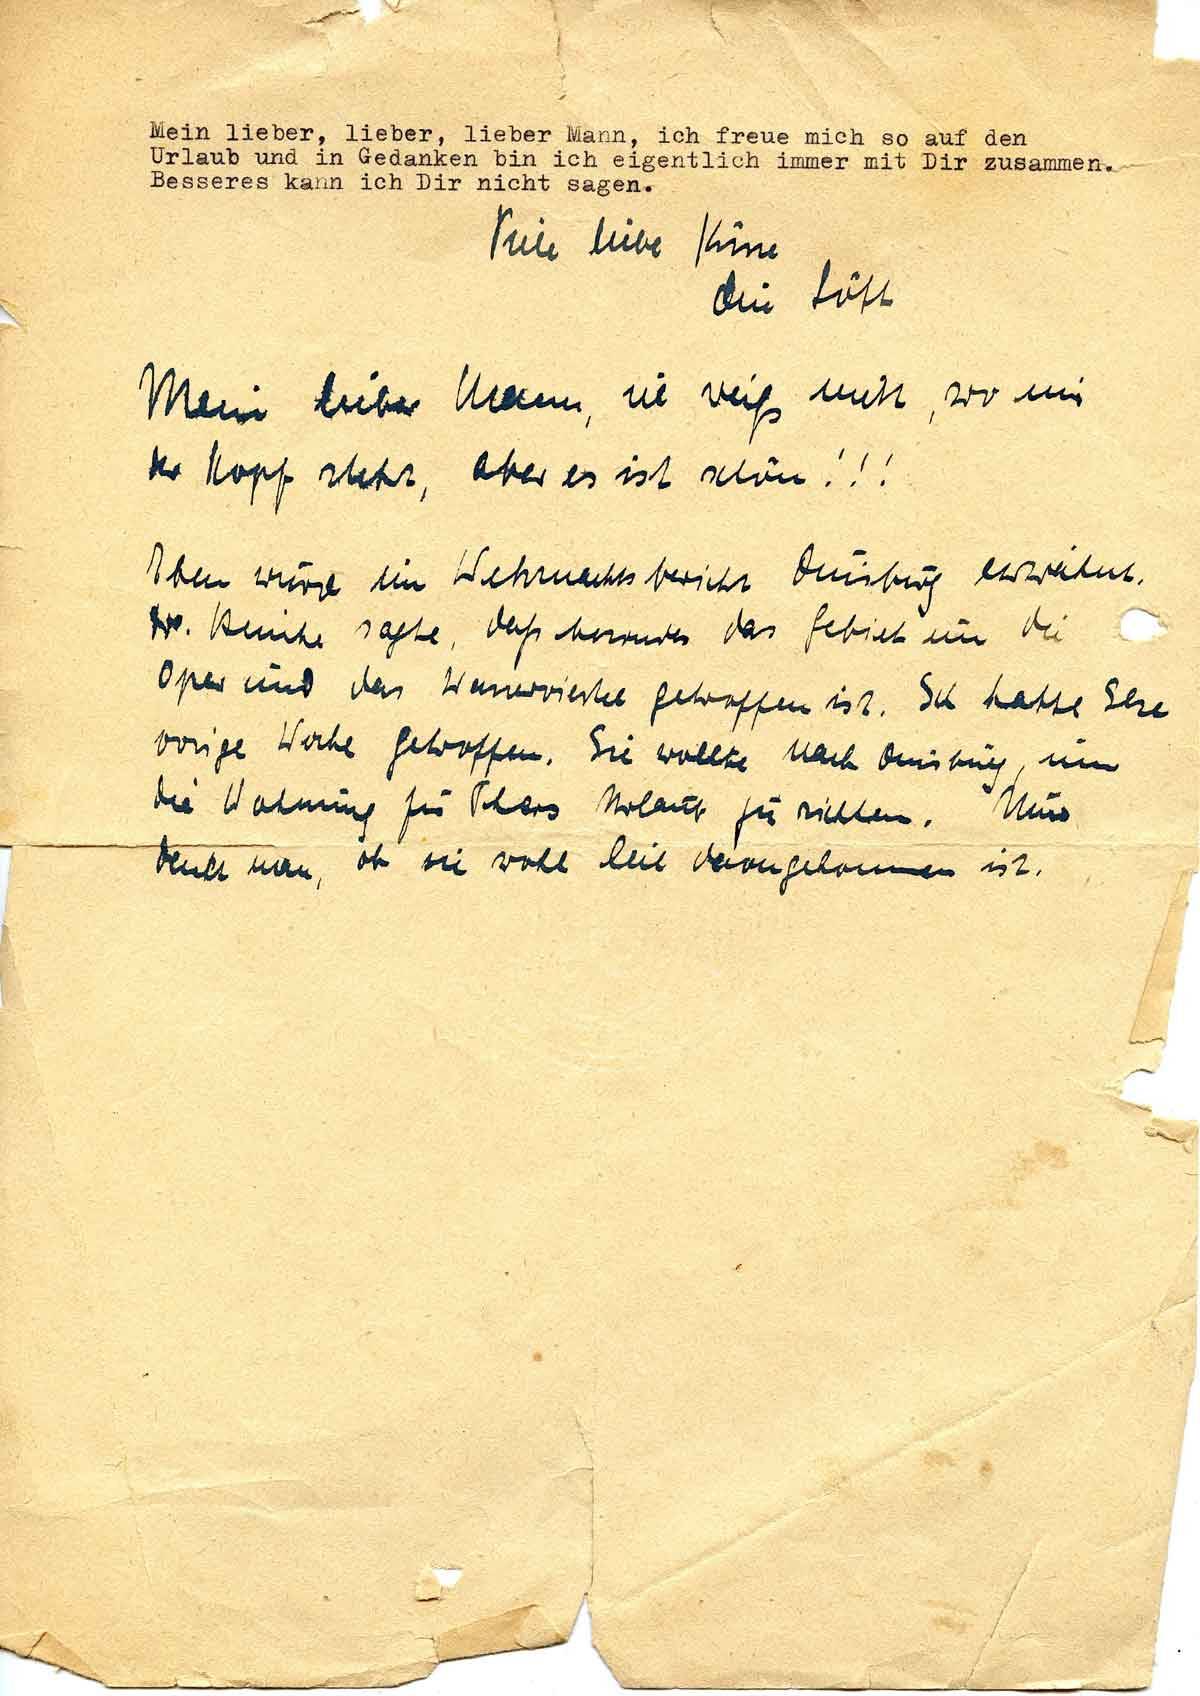 Mein lieber, lieber, lieber Mann, ich freue mich so auf den
Urlaub und in Gedanken bin ich eigentlich immer mit Dir zusammen.
Besseres kann ich Dir nicht sagen.
Viele liebe Küsse
Dein
Mein lieber Mann, ich weiß nicht, wo mir
der Kopf steht, aber es ist schön!!!
Eben wurde im Wehrmachtsbericht Duisburg erwähnt.
Dr. sagte, daß besonders das Gebiet um die
Oper und das Wasserviertel getroffen ist. Ich hatte Else
vorige Woche getroffen. Sie wollte nach Duisburg, um
die Wohnung für Urlaub zu richten. Nun
denkt man, ob sie wohl heil davongekommen ist.